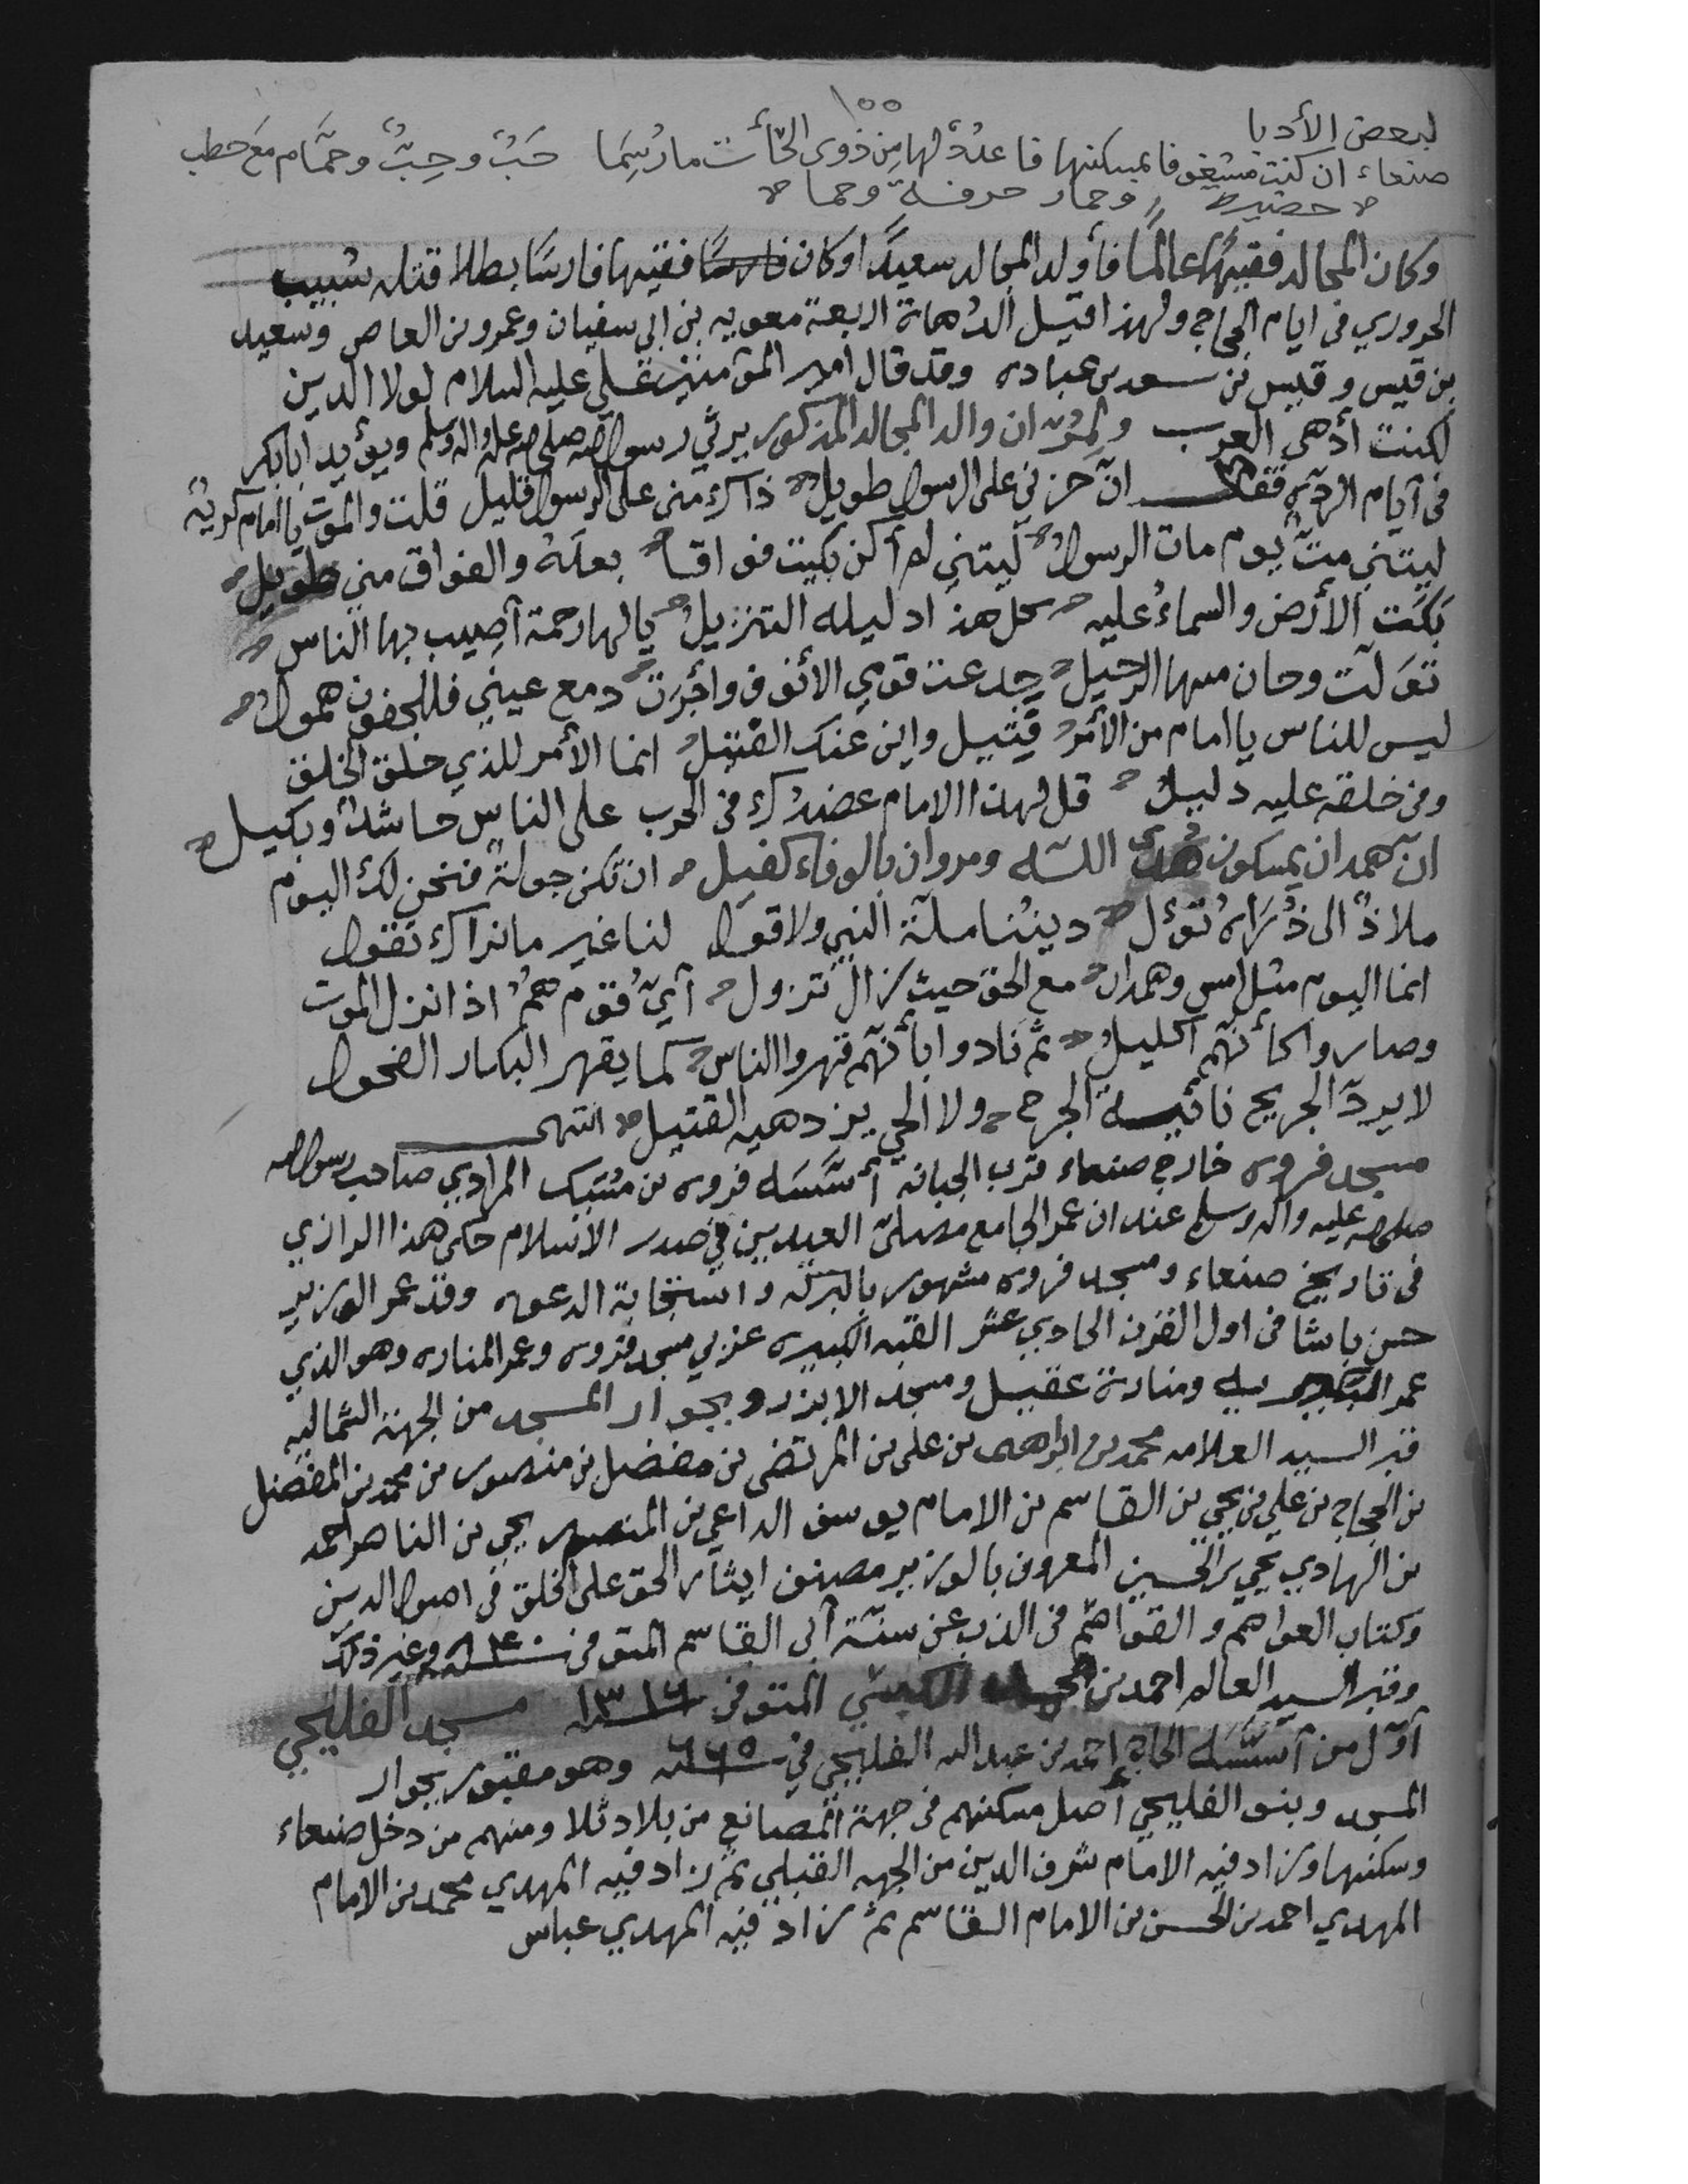 ١٥٥
لبعض الأدبا
صنعاء ان كنت مشغوفا بمسكنها فاعدد لها من ذوى الحاآت مارسما حَبّ وحِبّ وحمَّام مَع حطب
حضيره وحمار حرفة وحما
وكان المجالد فقيهًا عالمًا فأولد المجالد سعيدًا وكان فقيها فارسًا بطلا قتله شبيب
الحروري فى ايام الحجاج ولهذا قيل الدهاة اربعة معويه بن ابي سفيان وعمرو بن العاص وسعيد
بن قيس وقيس بن سعد بن عباده وقد قال امير المؤمنين علي عليه السلام لولا الدين
لكنت أدهى العرب و ان والد المجالد المذكور يرثي رسول الله صلى الله عليه واله وسلم ويؤيد ابا بكر
في أيام الردّه فقال انّ حزني على الرسول طويل ذاك منى على الرسول قليل قلت والموت يا امام كريهٌ
ليتني متّ يوم مات الرسول ليتني لم أكن بكيت فواقا بعده والفواق مني طويل
بكت الأرض والسماء عليه كل هذا التنزيل يا لها رحمة أصيب بها الناس
تولّت وحان منها الرحيل جدعت قومي الأنوف وأجرت دمع عيني فللجفون همول
ليس للناس يا امام من الأمر فتيل واين عنك الفتيل انما الأمر للذي خلق الخلق
وفى خلقه عليه دليل قل لهذا الامام عضدك فى الحرب على الناس حاشد وبكيل
انّ همدان يمسكون هدى اللـه ومروان بالوفاء كفيل ان تكن جولة فنحن لك اليوم
ملاذٌ الى ذُراه تؤل ديننا ملّة النبي ولا قول لنا غير ما نراك تقول
انما اليوم مثل امس وهمدان مع الحق حيث زال تزول أيّ قوم همُ اذا نزل الموت
وصاروا كأنّهم اكليل ثم نادوا بأنّهم قهروا الناس كما يقهر البكار الفحول
لا يردّ الجريح الجرح ولا الحي يزدهيه القتيل انتهى
مسجد فروه خارج صنعاء قرب الجبانة أسّسه فروه بن مُسَيك المرادي صاحب رسول الله
صلى الله عليه واله وسلم عند ان عمر الجامع مصلّى العيدين في صدر الاسلام حكى هذا الرازي
فى تاريخ صنعاء ومسجد فروه مشهور بالبركه واستجابة الدعوه وقد عمر الوزير
حسن باشا فى اول القرن الحادي عشر القبه الكبيره غربي مسجد فروه وعمر المناره وهو الذي
عمر البكيريه ومنارة عقيل ومسجد الابزر وبجوار المسجد من الجهة الشماليه
قبر السيد العلامه محمد بن ابراهيم بن علي بن المرتضى بن مفضل بن منصور بن محمد بن المفضل
بن الحجاج بن علي بن يحي بن القاسم بن الامام يوسف الداعي بن المنصور يحي بن الناصر احمد
بن الهادي يحي بن الحسين المعروف بالوزير مصنف ايثار الحق على الخلق فى اصول الدين
وكتاب العواصم والقواصم فى الذب عن سنّة أبى القاسم المتوفى سنة ٨٤٠ وغير ذلك
وقبر السيد العالم احمد بن الكبسي المتوفى سنة ١٣١٦ مسجد الفليحي
أوّل من أسّسه الحاج احمد بن عبد الله الفليحي في سنة ٦٦٥ وهو مقبور بجوار
المسجد وبنو الفليحي أصل مسكنهم فى جهة المصانع من بلاد ثلا ومنهم من دخل صنعاء
وسكنها وزاد فيه الامام شرف الدين من الجهه القبلي ثم زاد فيه المهدي محمد بن الامام
المهدي احمد بن الحسن بن الامام القاسم ثم زاد فيه المهدي عباس